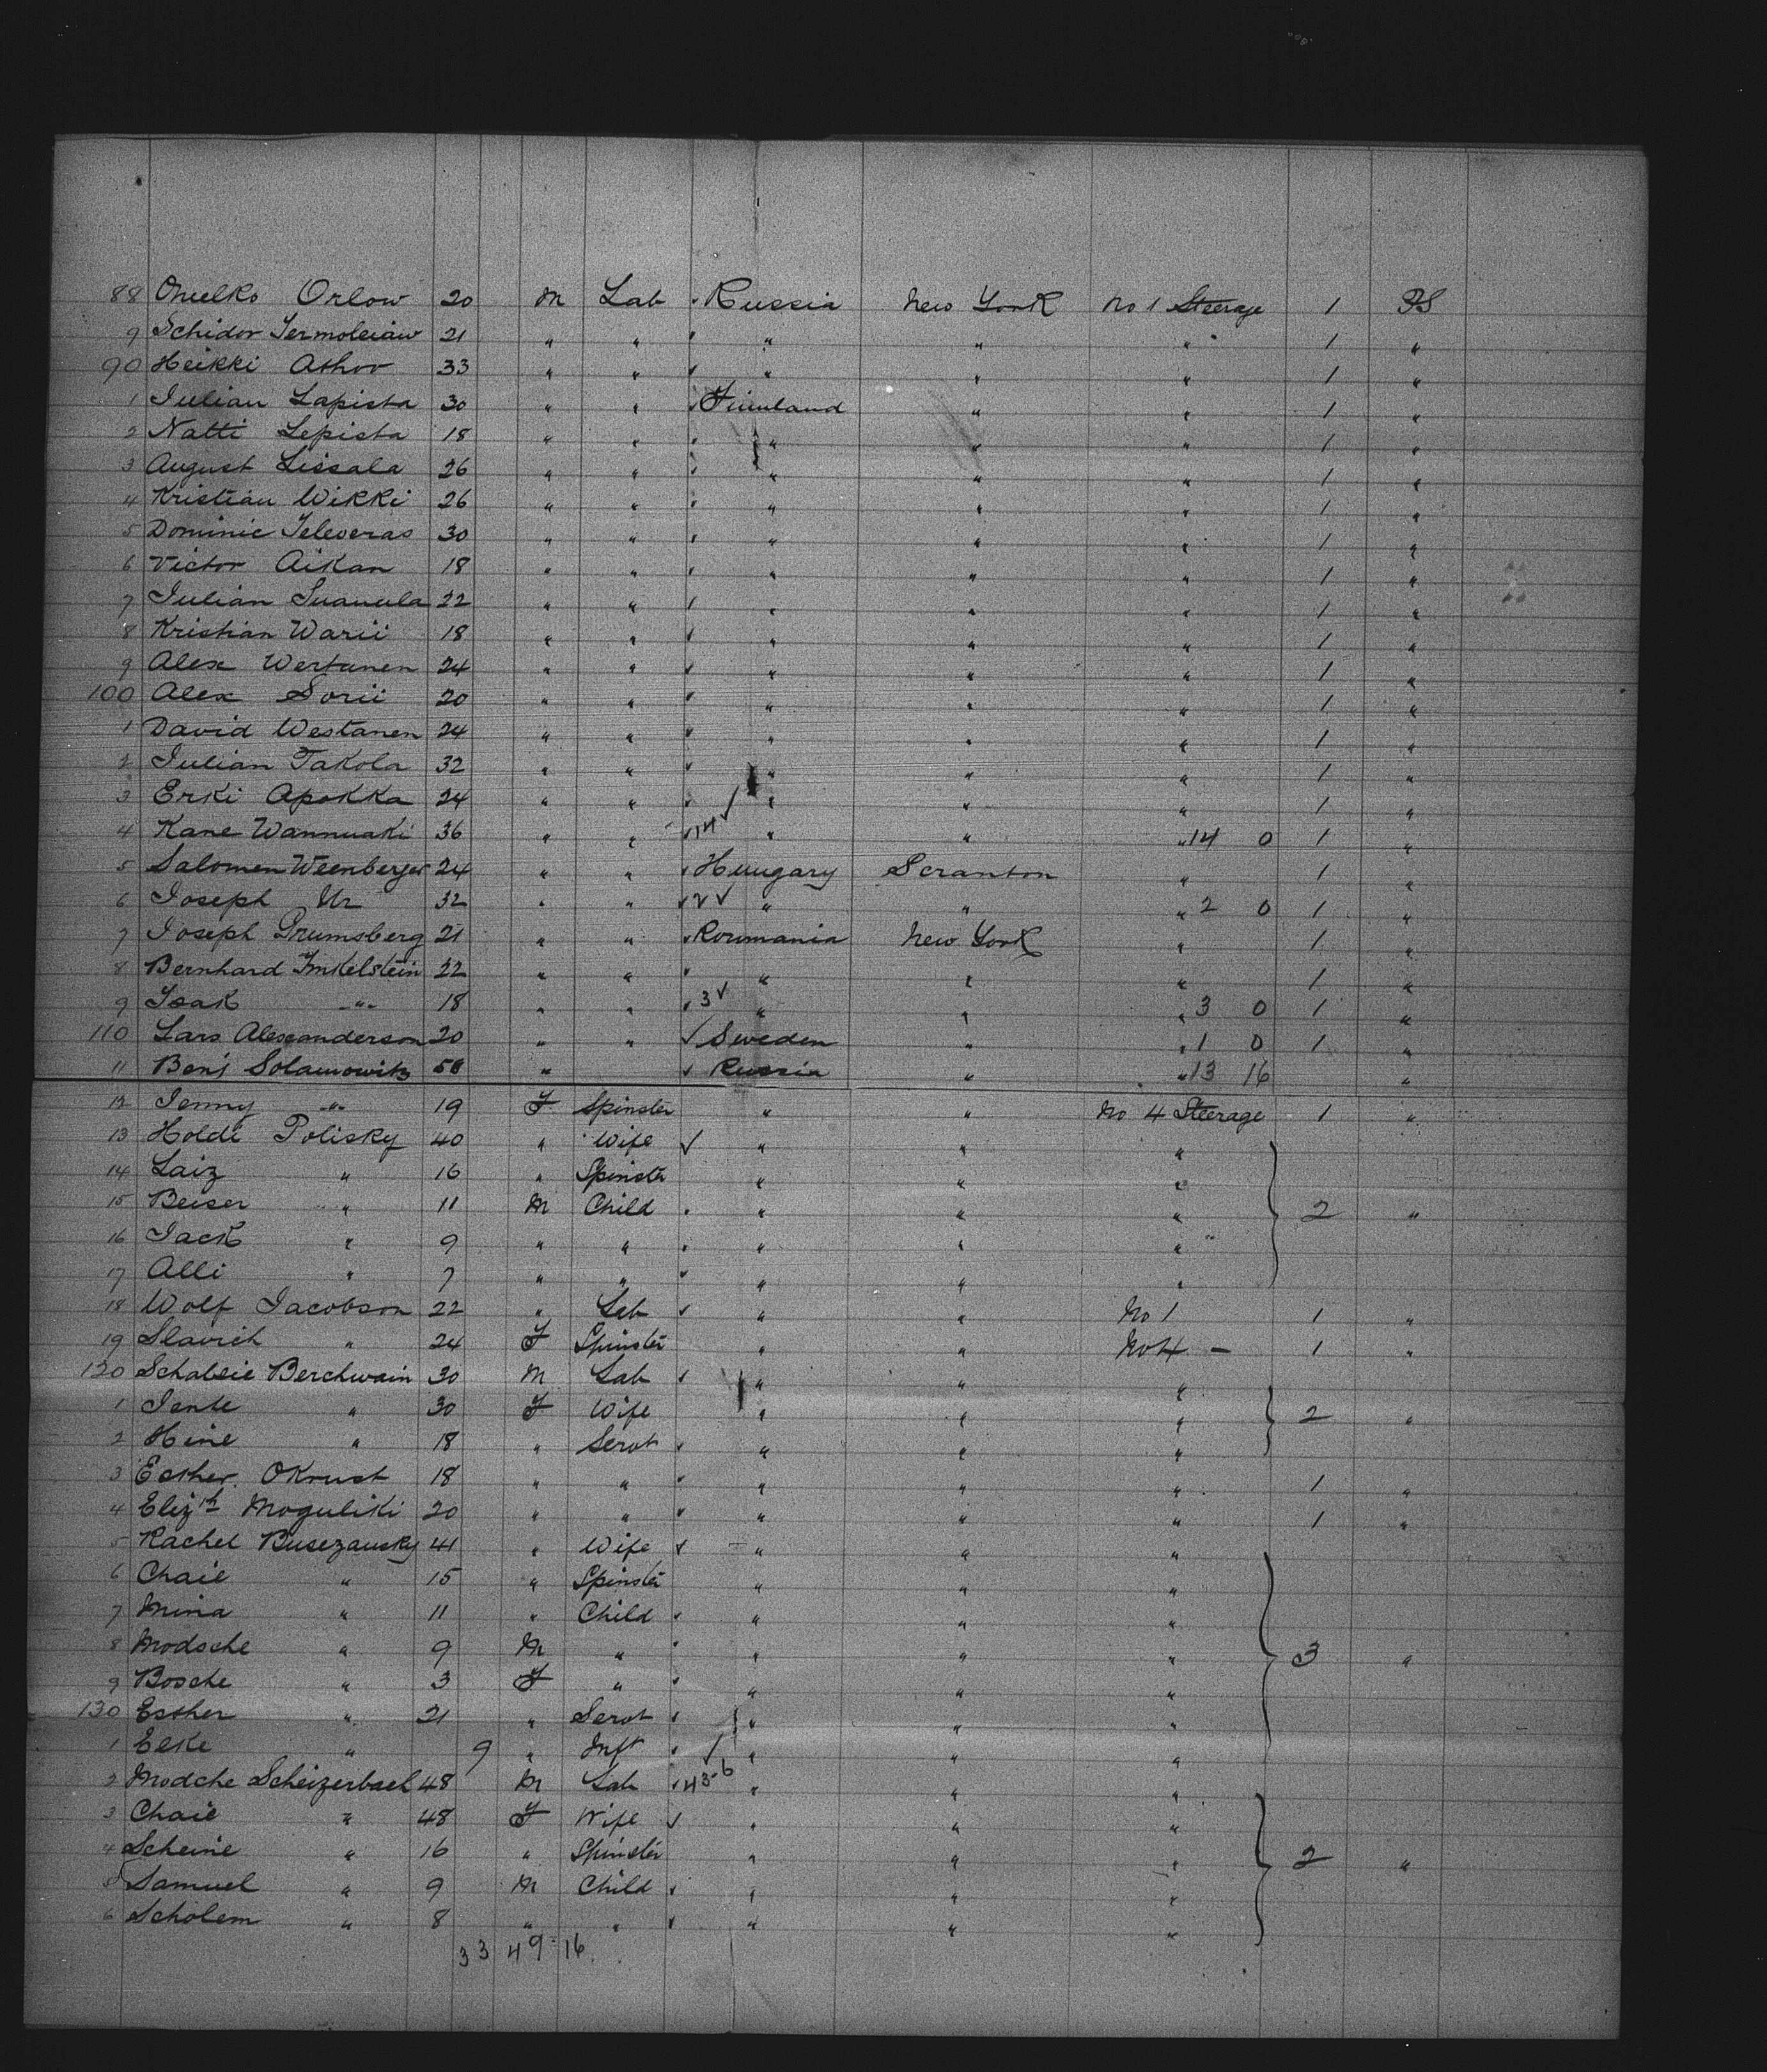 88 Onulko Orlow 20 M Lab Russia New York No 1 Steerage 1 PS
9 Schidor Jermoleiaw 21 " " " " " 1 "
90 Heikki Athor 33 " " " " " 1 "
1 Julian Lapista 30 " " Finnland " " 1 "
2 Natti Lepista 18 " " " " " 1 "
3 August Lissala 26 " " " " " 1 "
4 Kristian Wikki 26 " " " " " 1 "
5 Dominic Televeras 30 " " " " " 1 "
6 Victor Aikan 18 " " " " " 1 "
7 Julian Suanula 22 " " " " " 1 "
8 Kristian Warii 18 " " " " " 1 "
9 Alex Wertanen 24 " " " " " 1 "
100 Alex Sorii 20 " " " " " 1 "
1 David Westanen 24 " " " " " 1 "
2 Julian Takola 32 " " " " " 1 "
3 Erki Apokka 24 " " " " " 1 "
4 Kane Wannuaki 36 " " 14 " " " 14 0 1 "
5 Salomen Weenberger 24 " " Hungary Scranton " 1 "
6 Joseph Ur 32 " " 2 " " " 2 0 1 "
7 Joseph Grumsberg 21 " " Roumania New York " 1 "
8 Bernhard Finkelstein 22 " " " " " 1 "
9 Isak " 18 " " 3 " " " 3 0 1 "
110 Lars Alexanderson 20 " " Sweden " " 1 0 1 "
11 Benj Solamowitz 58 " Russia " " 13 16 "
12 Jenny " 19 F Spinster " " No 4 Steerage 1 "
13 Holde Polisky 40 " Wife " " "
14 Laiz " 16 " Spinster " " "
15 Beiser " 11 M Child " " " 2 "
16 Jack " 9 " " " " "
17 Alli " 7 " " " " "
18 Wolf Jacobson 22 " Lab " " No 1 1 "
19 Slavich " 24 F Spinster " " No 4 - 1 "
120 Schabsie Berchwain 30 M Lab " " "
1 Jente " 30 F Wife " " " 2 "
2 Hine " 18 " Servt " " "
3 Esther Okrust 18 " " " " " 1 "
4 Elizth Moguliki 20 " " " " " 1 "
5 Rachel Busezansky 41 " Wife " " "
6 Chaie " 15 " Spinster " " "
7 Mina " 11 " Child " " "
8 Modsche " 9 M " " " " 3 "
9 Bosche " 3 F " " " "
130 Esther " 21 " Servt " " "
1 Elke " 9 " Inft " " "
2 Modche Scheizerbach 48 M Lab 43-6 " " "
3 Chaie " 48 F Wife " " "
4 Scheine " 16 " Spinster " " " 2 "
5 Samuel " 9 M Child " " "
6 Scholem " 8 " " " " "
33 49 16